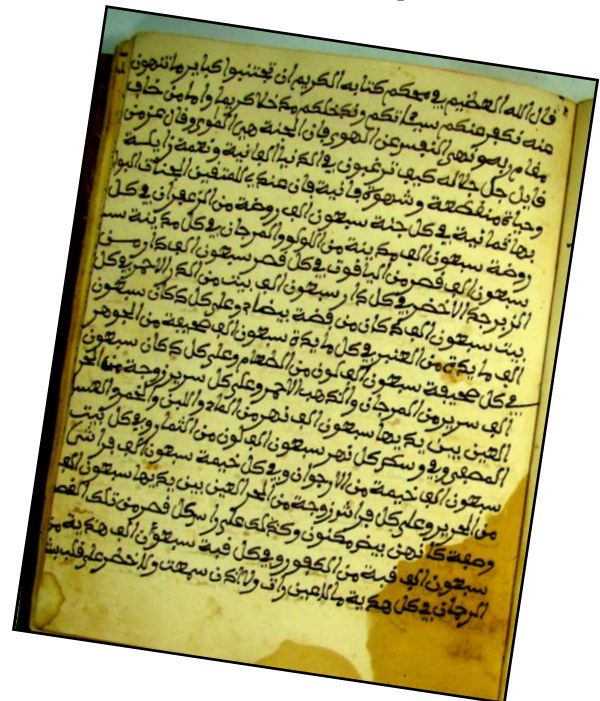 قال الله العظيم في محكم كتابه الكريم ان تجتنبوا كباير ما تنهون
عنه نكفر عنكم سيئاتكم وندخلكم مدخلا كريما واما من خاف
مقام ربه ونهى النفس عن الهوى فان الجنة هي الماوى وقال عز من
قايل جل جلاله كيف ترغبون في الدنيا الفانية ونعمة زايلة
وحياة منقطعة وشهوة فانية فان عندي للمتقين الجنات
بها ثمانية في كل جنة سبعون الف روضة من الزعفران في كل
روضة سبعون الف مدينة من اللولو والمرجان في كل مدينة
سبعون الف قصر من الياقوت في كل قصر سبعون الف دار من
الزبرجد الاخضر في كل دار سبعون الف بيت من الاحمر في كل
بيت سبعون الف دكان من فضة بيضاء وعلى كل دكان سبعون
الف مايدة من العنبر في كل مايدة سبعون الف صحيفة من الجوهر
في كل صحيفة سبعون الف لون من الطعام وعلى كل دكان سبعون
الف سرير من المرجان والذهب الاحمر وعلى كل سرير زوجة من الحر
العين بين يديها سبعون الف نهر من الماء واللبن والخمر والعسل
المصفى وفي وسط كل نهر سبعون الف لون من الثمار وفي كل بيت
سبعون الف خيمة من الارجوان وفي كل خيمة سبعون الف فراش
من الحرير وعلى كل فراش زوجة من الحر العين بين يديها سبعون الف
وصفة كانهن بيض مكنون وكذلك على راس كل قصر من تلك
سبعون الف قبة من الكافور وفي كل قبة سبعون الف هدية من
الرحمان في كل هدية ما لا عين رات ولا اذن سمعت ولا خطر على قلب